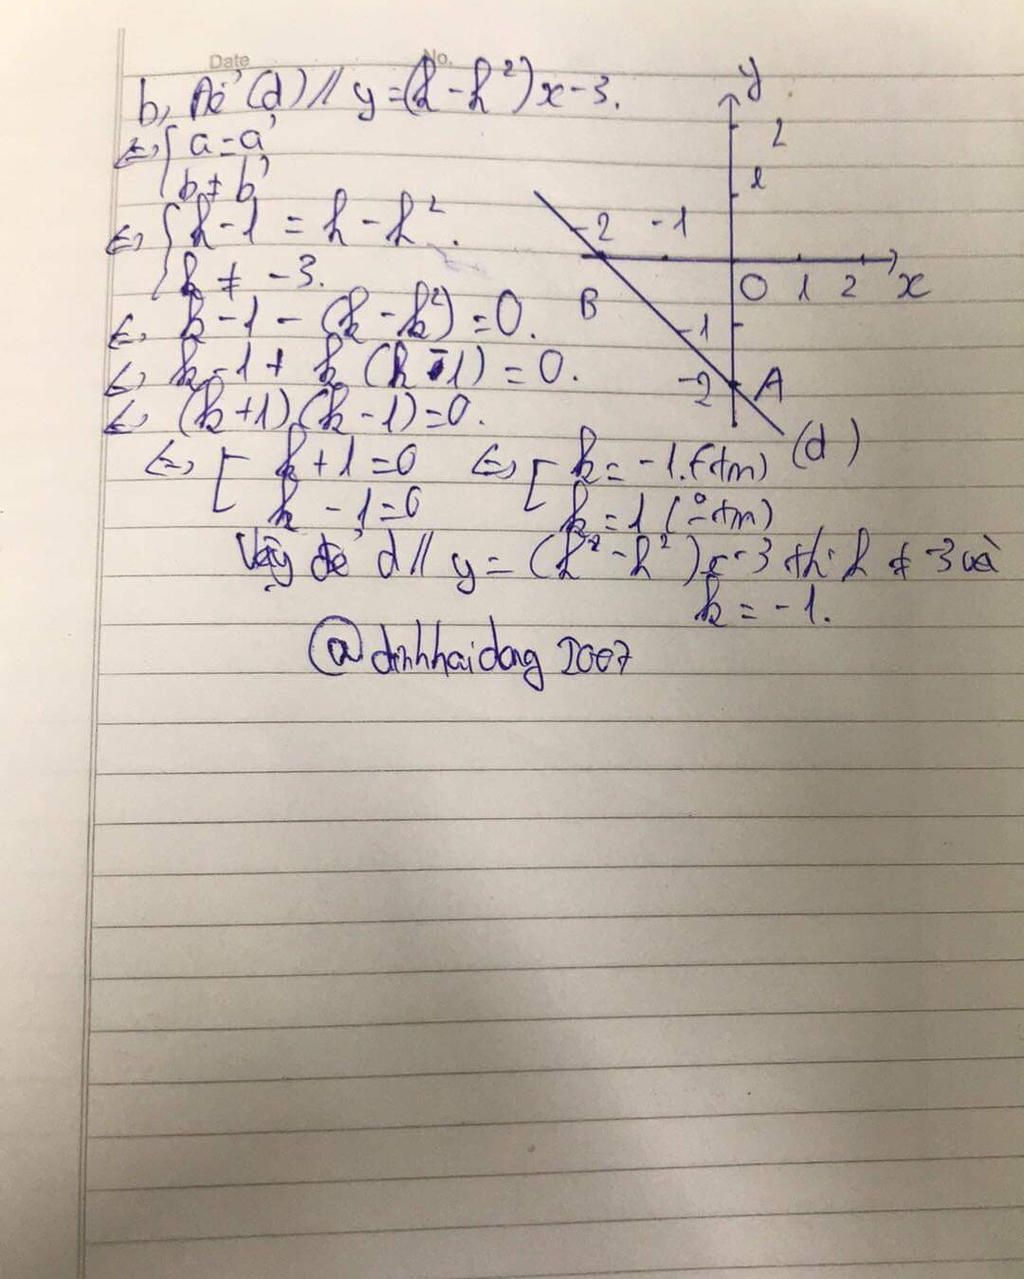 Date No.
b, Để (d) // y = (k - k²)x - 3.
⇔ { a = a'
b ≠ b'
⇔ { k - 1 = k - k².
k ≠ -3.
⇔ k - 1 - (k - k²) = 0.
⇔ k - 1 + k (k - 1) = 0.
⇔ (k + 1) (k - 1) = 0.
⇔ [ k + 1 = 0 ⇔ [ k = -1. (tm)
k - 1 = 0 k = 1 (tm)
Vậy để d // y = (k² - k²)x - 3 thì k ≠ -3 và
k = -1.
@dinhhaidang 2007
y
2
1
-2 -1
0 1 2 x
B
-1
-2 A
(d)